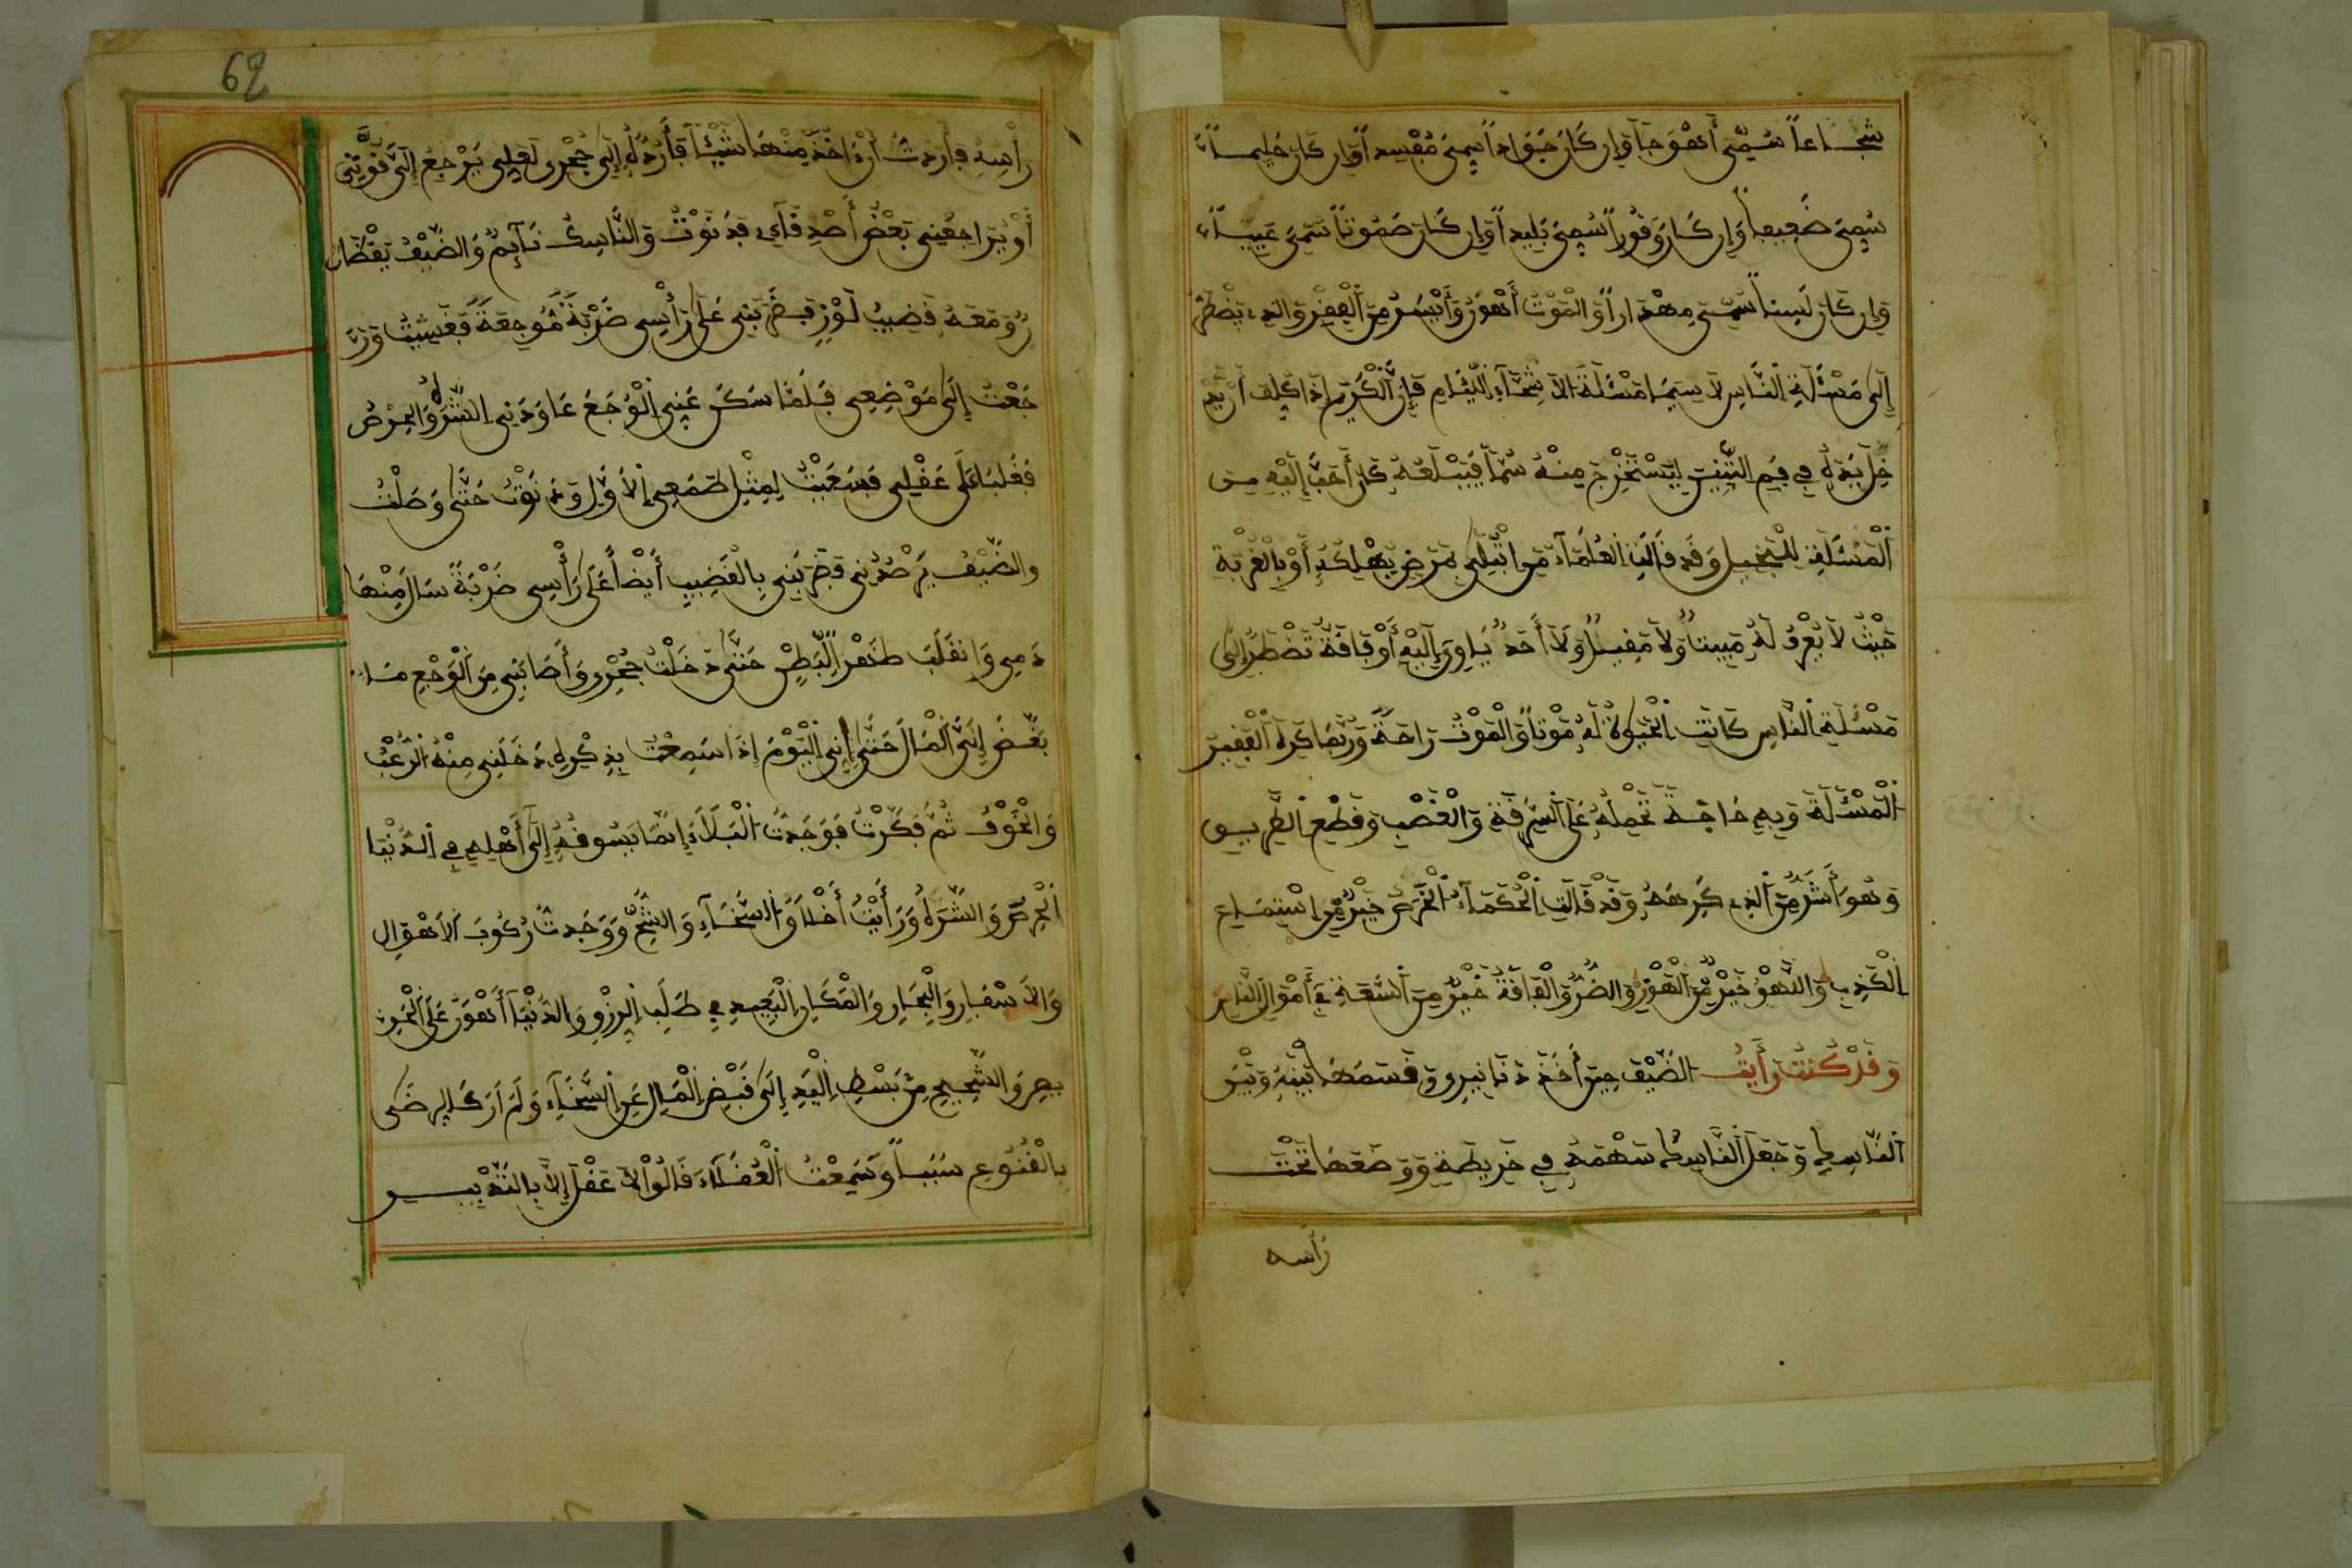 شجاعاً سُمِّيَ أَهْوَجَاً وَإِن كَانَ جَوَاداً سُمِّيَ مُفْسِداً وَإِن كَانَ حَلِيماً
سُمِّيَ ضَعِيفاً وَإِن كَانَ وَقُوراً سُمِّيَ بَلِيداً وَإِن كَانَ صَمُوتاً سُمِّيَ عَيِيّاً
وَإِن كَانَ لَسِناً سُمِّيَ مِهْذَاراً وَالْمَوْتُ أَهْوَنُ وَأَيْسَرُ مِنَ الْفَقْرِ وَالذِي يَضْطَرُّ
إِلَى مَسْئَلَةِ النَّاسِ لاَ سِيَمَا مَسْئَلَةَ الاَشِحَّآءِ اللِّئَامِ فَإِنَّ الْكَرِيمَ إِذَا كُلِّفَ أَنْ يُدْ
خِلَ يَدَهُ فِي فَمِ التِّنِّينِ لِيَسْتَخْرِجَ مِنْهُ سُمّاً فَيَبْلَعَهُ كَانَ أَحَبَّ إِلَيْهِ مِن
الْمَسْئَلَةِ لِلْبَخِيلِ وَقَد قَالَتِ الْعُلَمَآءُ مَنِ ابْتُلِيَ بِمَرَضٍ يُهْلِكُهُ أَوْ بِالْغُرْبَةِ
حَيْثُ لاَ يُعْرَفُ لَهُ مَبِيتاً وَلاَ مَقِيلاً وَلاَ أَحَدٌ يَاوِي إِلَيْهِ أَوْ فَاقَةٌ تَضْطَرُّ إِلَى
مَسْئَلَةِ النَّاسِ كَانَتِ الْحَيَوٰةُ لَهُ مَوْتاً وَالْمَوْتُ رَاحَةً وَرُبَّمَا كَرِهَ الْفَقِيرُ
الْمَسْئَلَةَ وَبِهِ حَاجَةٌ تَحْمِلُهُ عَلَى السَّرِقَةِ وَالْغَصْبِ وَقَطْعِ الطَّرِيقِ
وَهُوَ أَشَرُّ مِنَ الذِي كَرِهَهُ وَقَدْ قَالَتِ الْحُكَمَآءُ الْخَرَسُ خَيْرٌ مِّنِ اسْتِمَاعِ
الْكَذِبِ وَاللَّهْوُ خَيْرٌ مِّنَ الْهَوْنِ وَالضُّرُّ وَالْفَاقَةُ خَيْرٌ مِنَ السَّعَةِ فِي أَمْوَالِ النَّاسِ
وَقَدْ كُنْتُ رَأَيْتُ الضَّيْفَ حِينَ أَخَذَ دَنَانِيرِي وَقَسَمَهَا بَيْنَهُ وَبَيْنَ
النَّاسِكِ وَجَعَلَ النَّاسِكُ سَهْمَهُ فِي خَرِيطَةٍ وَوَضَعَهَا تَحْتَ
رَأسه
62
رَأْسِهِ فَأَرَدتُّ أَنْ ءَاخُذَ مِنْهَا شَيْئاً فَأَرُدَّهُ إِلَى جُحْرِي لَعَلِّي يَرْجِعُ إِلَيَّ قُوَّتِي
أَوْ يُرَاجِعُنِي بَعْضُ أَصْدِقَآءِي فَدَنَوْتُ وَالنَّاسِكُ نَآئِمٌ وَالضَّيْفُ يَقْظَانُ
وَمَعَهُ قَضِيبُ لَوْزٍ فَضَرَبَنِي عَلَى رَأْسِي ضَرْبَةً مُّوجِعَةً فَغَشِيتُ وَرَ
جَعْتُ إِلَى مَوْضِعِي فَلَمَّا سَكَنَ عَنِّي الْوَجَعُ عَاوَدَنِي الشَّرَهُ وَالْحِرْصُ
فَغَلَبَا عَلَى عَقْلِي فَسَعَيْتُ لِمِثْلِ طَمَعِي الاَوَّلِ وَدَنَوْتُ حَتَّى وَصَلْتُ
وَالضَّيْفُ يَرْصُدُنِي فَضَرَبَنِي بِالْقَضِيبِ أَيْضاً عَلَى رَأْسِي ضَرْبَةً سَالَ مِنْهَا
دَمِي وَانقَلَبَ ظَهْراً لِبَطْنٍ حَتَّى دَخَلْتُ جُحْرِي وَأَصَابَنِي مِنَ الْوَجَعِ مَا
بَغَّضَ إِلَيَّ الْمَالَ حَتَّى إِنِّي الْيَوْمَ إِذَا سَمِعْتُ بِذِكْرِهِ دَخَلَنِي مِنْهُ الرُّعْبُ
وَالْخَوْفُ ثُمَّ فَكَّرْتُ فَوَجَدتُّ الْبَلاَءَ إِنَّمَا يَسُوقُهُ إِلَى أَهْلِهِ فِي الدُّنْيَا
الْحِرْصُ وَالشَّرَهُ وَرَأَيْتُ أَخْلاَقَ السَّخَآءِ وَالشُّحِّ وَوَجَدتُّ رُكُوبَ الاَهْوَالِ
وَالاَسْفَارِ وَالْبِحَارِ وَالْمَكَانِ الْبَعِيدِ فِي طَلَبِ الرِّزْقِ وَالدُّنْيَا أَهْوَنَ عَلَى الْحَرِ
يصِ وَالشَّحِيحِ مِنْ بَسْطِ الْيَدِ إِلَى قَبْضِ الْمَالِ عَنِ السَّخَآءِ وَلَمْ أَرَ كَالرِّضَى
بِالْقُنُوعِ سَبَباً وَسَمِعْتُ الْعُقَلاَءَ قَالُوا لاَ عَقْلَ إِلاَّ بِالتَّدْبِيرِ